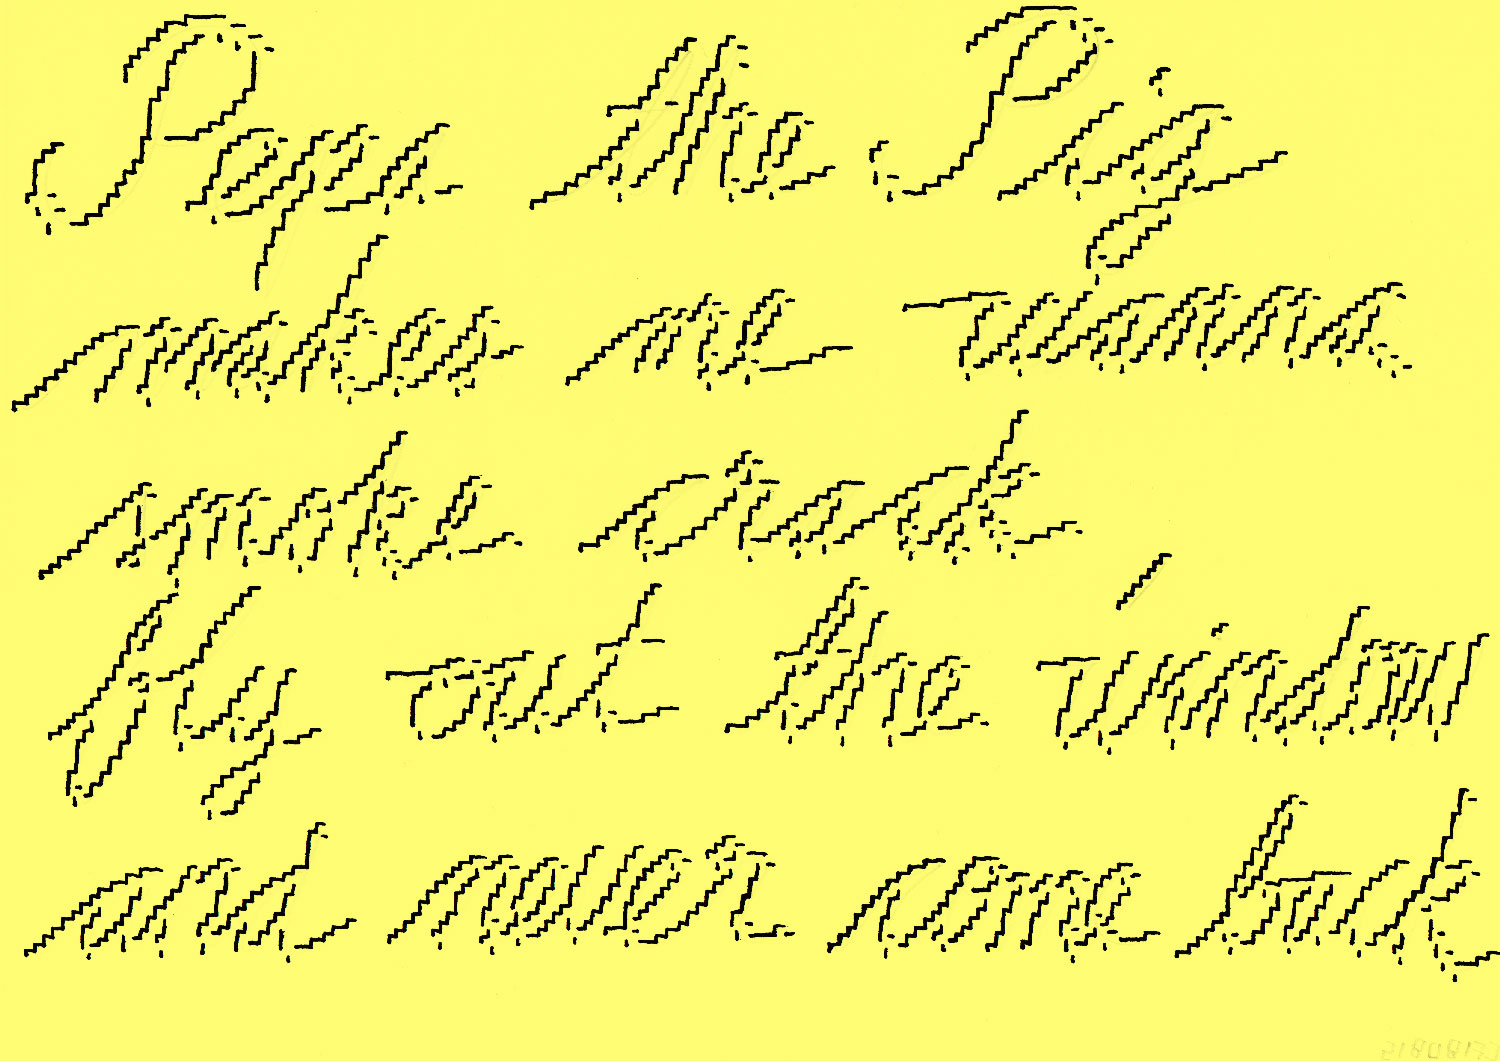 Pepa the Pig
makes me wanna
smoke crack
fly out the window
and never come back